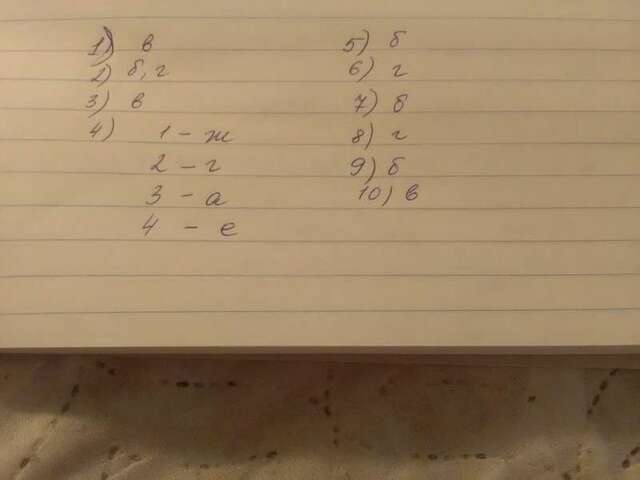 1) в
2) б, г
3) в
4) 1 – ж
2 – г
3 – а
4 – е
5) б
6) г
7) б
8) г
9) б
10) в